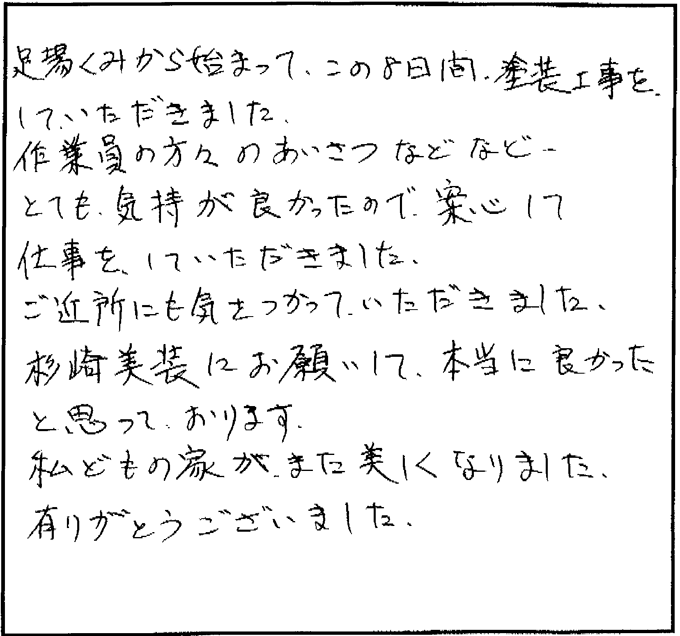 足場くみから始まって、この8日間、塗装工事を、
して、いただきました、
作業員の方々のあいさつなどなど−
とても、気持が良かったので、案心して
仕事を、していただきました、
ご近所にも気をつかって、いただきました、
杉崎美装にお願いして、本当に良かった
と思って、おります、
私どもの家が、また美しくなりました、
有りがとうございました、